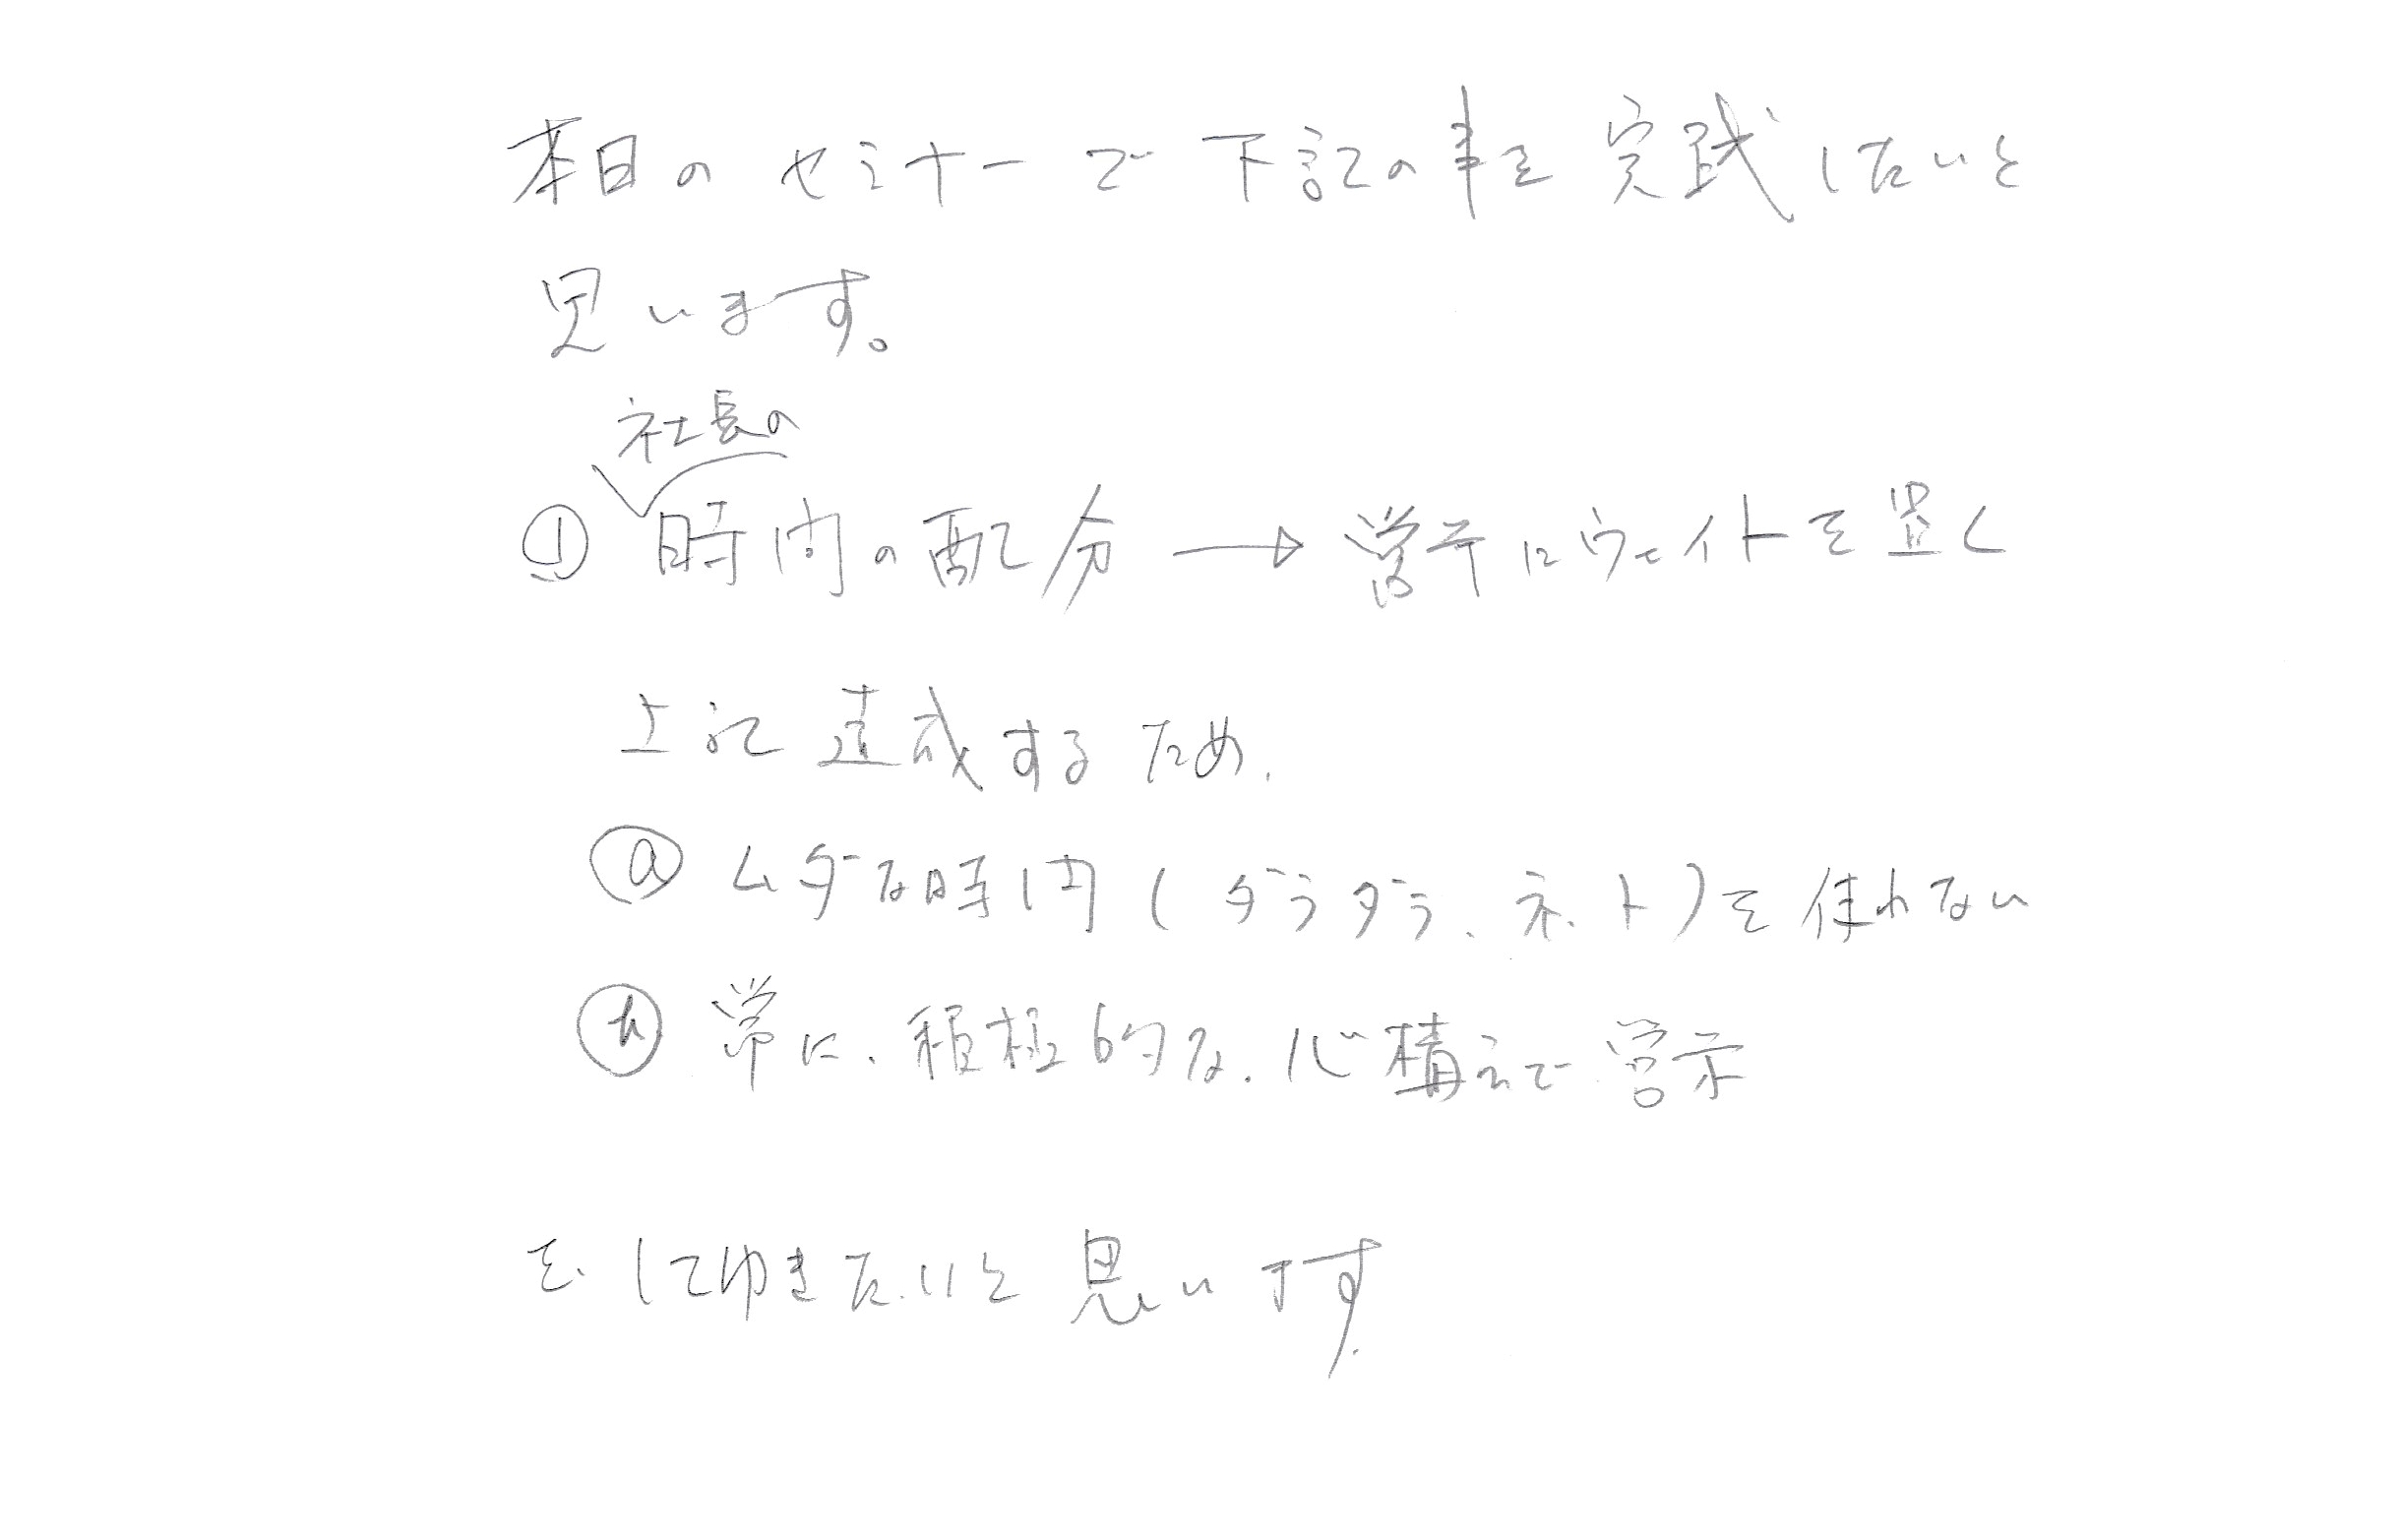 本日のセミナーで下記の事を実践したいと
思います。
社長の
① 時間の配分 → 営業にウェイトを置く
上記達成するため、
ⓐ ムダな時間(ダラダラ、ネット)を使わない
ⓑ 常に、積極的な、心構えで営業
を、してゆきたいと思います。